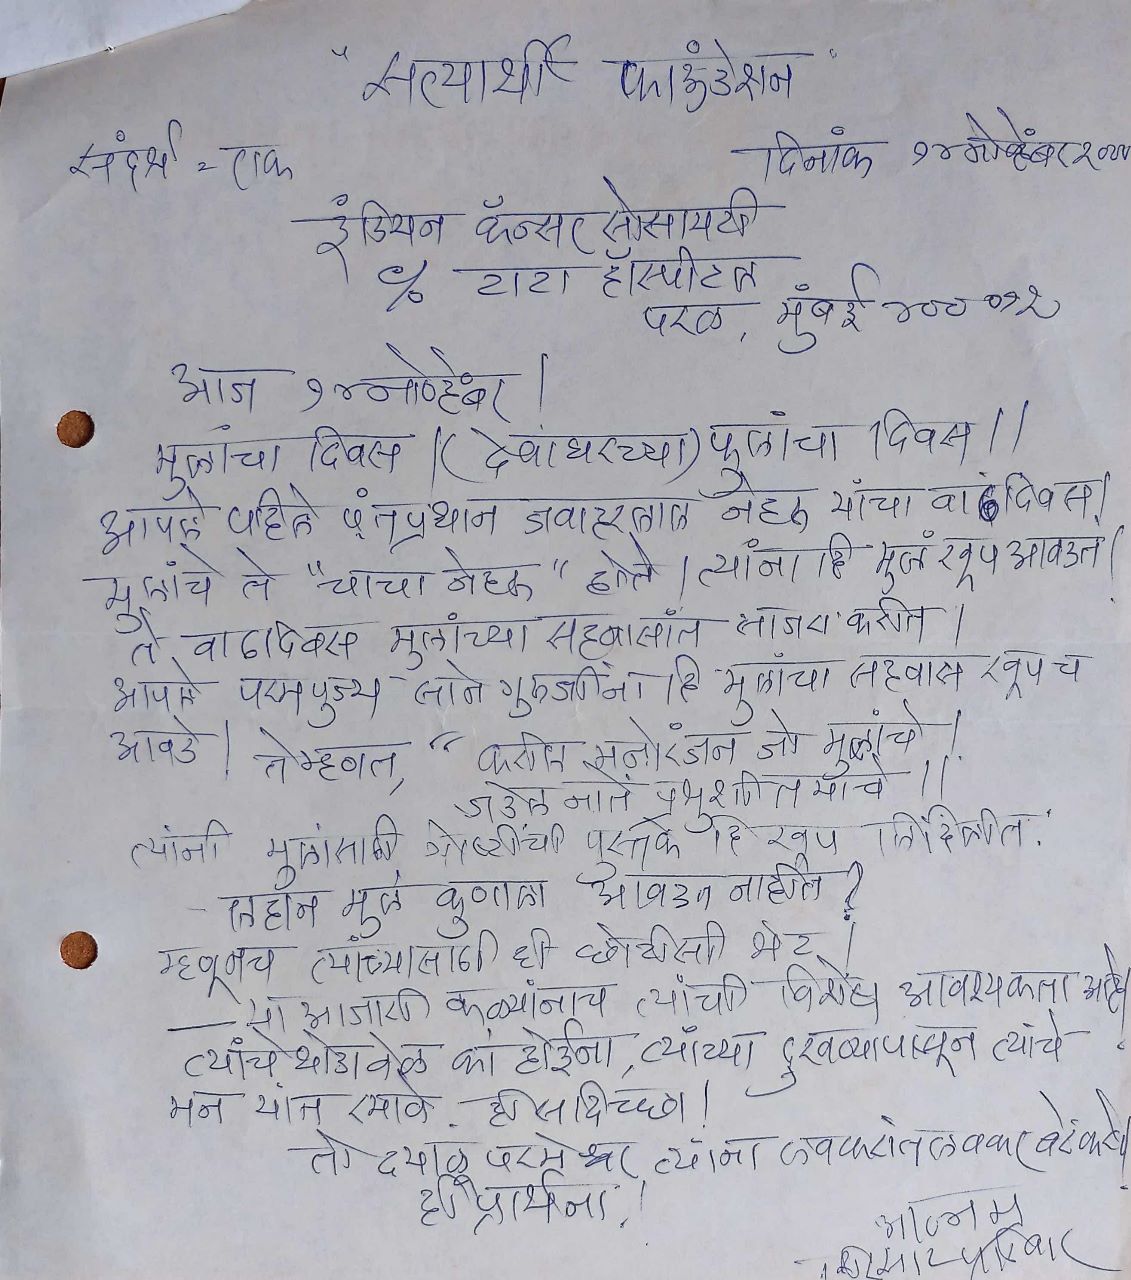 "सत्यार्थी फाऊंडेशन"
संदर्भ = एक
दिनांक १४ नोव्हेंबर २०००
इंडियन कॅन्सर सोसायटी
% टाटा हॉस्पीटल
परळ, मुंबई ४०००१२
आज १४ नोव्हेंबर |
मुलांचा दिवस | (देवाघरच्या) फुलांचा दिवस ||
आपले पहिले पंतप्रधान जवाहरलाल नेहरू यांचा वाढदिवस |
मुलांचे ते "चाचा नेहरू" होते | त्यांना हि मुलं खूप आवडत |
ते वाढदिवस मुलांच्या सहवासांत साजरा करीत |
आपले परमपुज्य साने गुरुजींना हि मुलांचा सहवास खूपच
आवडे | ते म्हणत, " करील मनोरंजन जो मुलांचे |
जडेल नाते प्रभुशी तयाचे ||
त्यांनी मुलांसाठी गोष्टींची पुस्तके हि खूप लिहिलीत.
- लहान मुलं कुणाला आवडत नाहीत ?
म्हणूनच त्यांच्यासाठी ही छोटीसी भेट |
या आजारी कळ्यांनाच त्यांची विशेष आवश्यकता आहे |
त्यांचे थोडावेळ कां होईना, त्यांच्या दुखण्यापासून त्यांचे
मन यांत रमावे. ही सदिच्छा !
तो दयाळू परमेश्वर त्यांना लवकरांत लवकर बरे करो |
ही प्रार्थना !